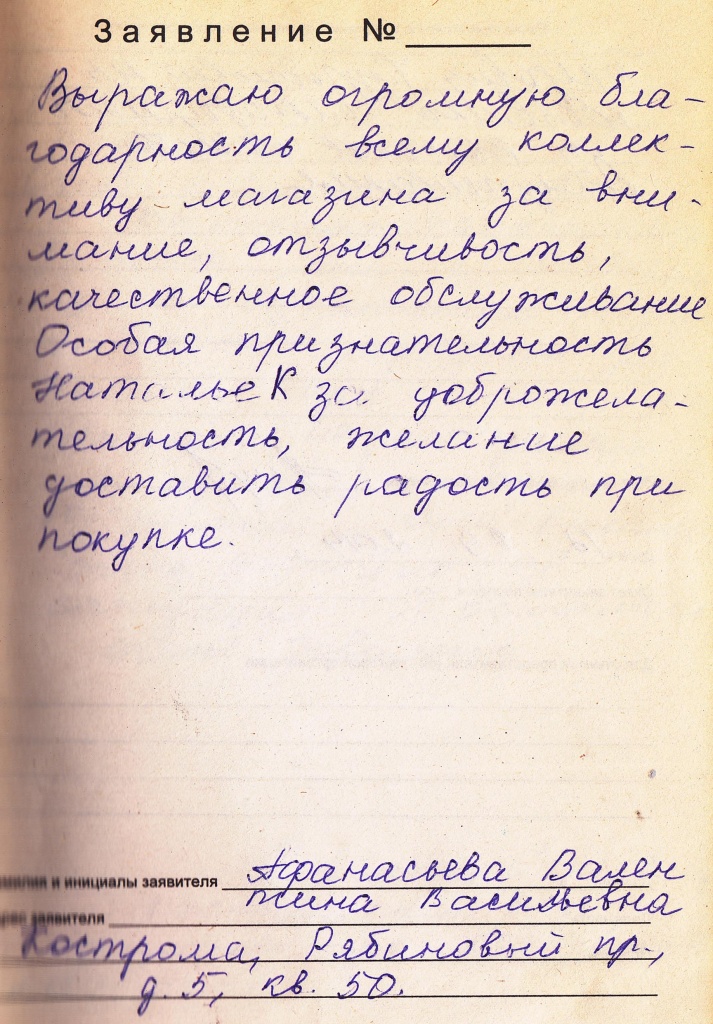 Заявление №
Выражаю огромную бла-
годарность всему коллек-
тиву магазина за вни-
мание, отзывчивость,
качественное обслуживание
Особая признательность
Наталье К за доброжела-
тельность, желание
доставить радость при
покупке.
и инициалы заявителя Афанасьева Вален
тина Васильевна
заявителя
Кострома, Рябиновый пр.,
д. 5, кв. 50.